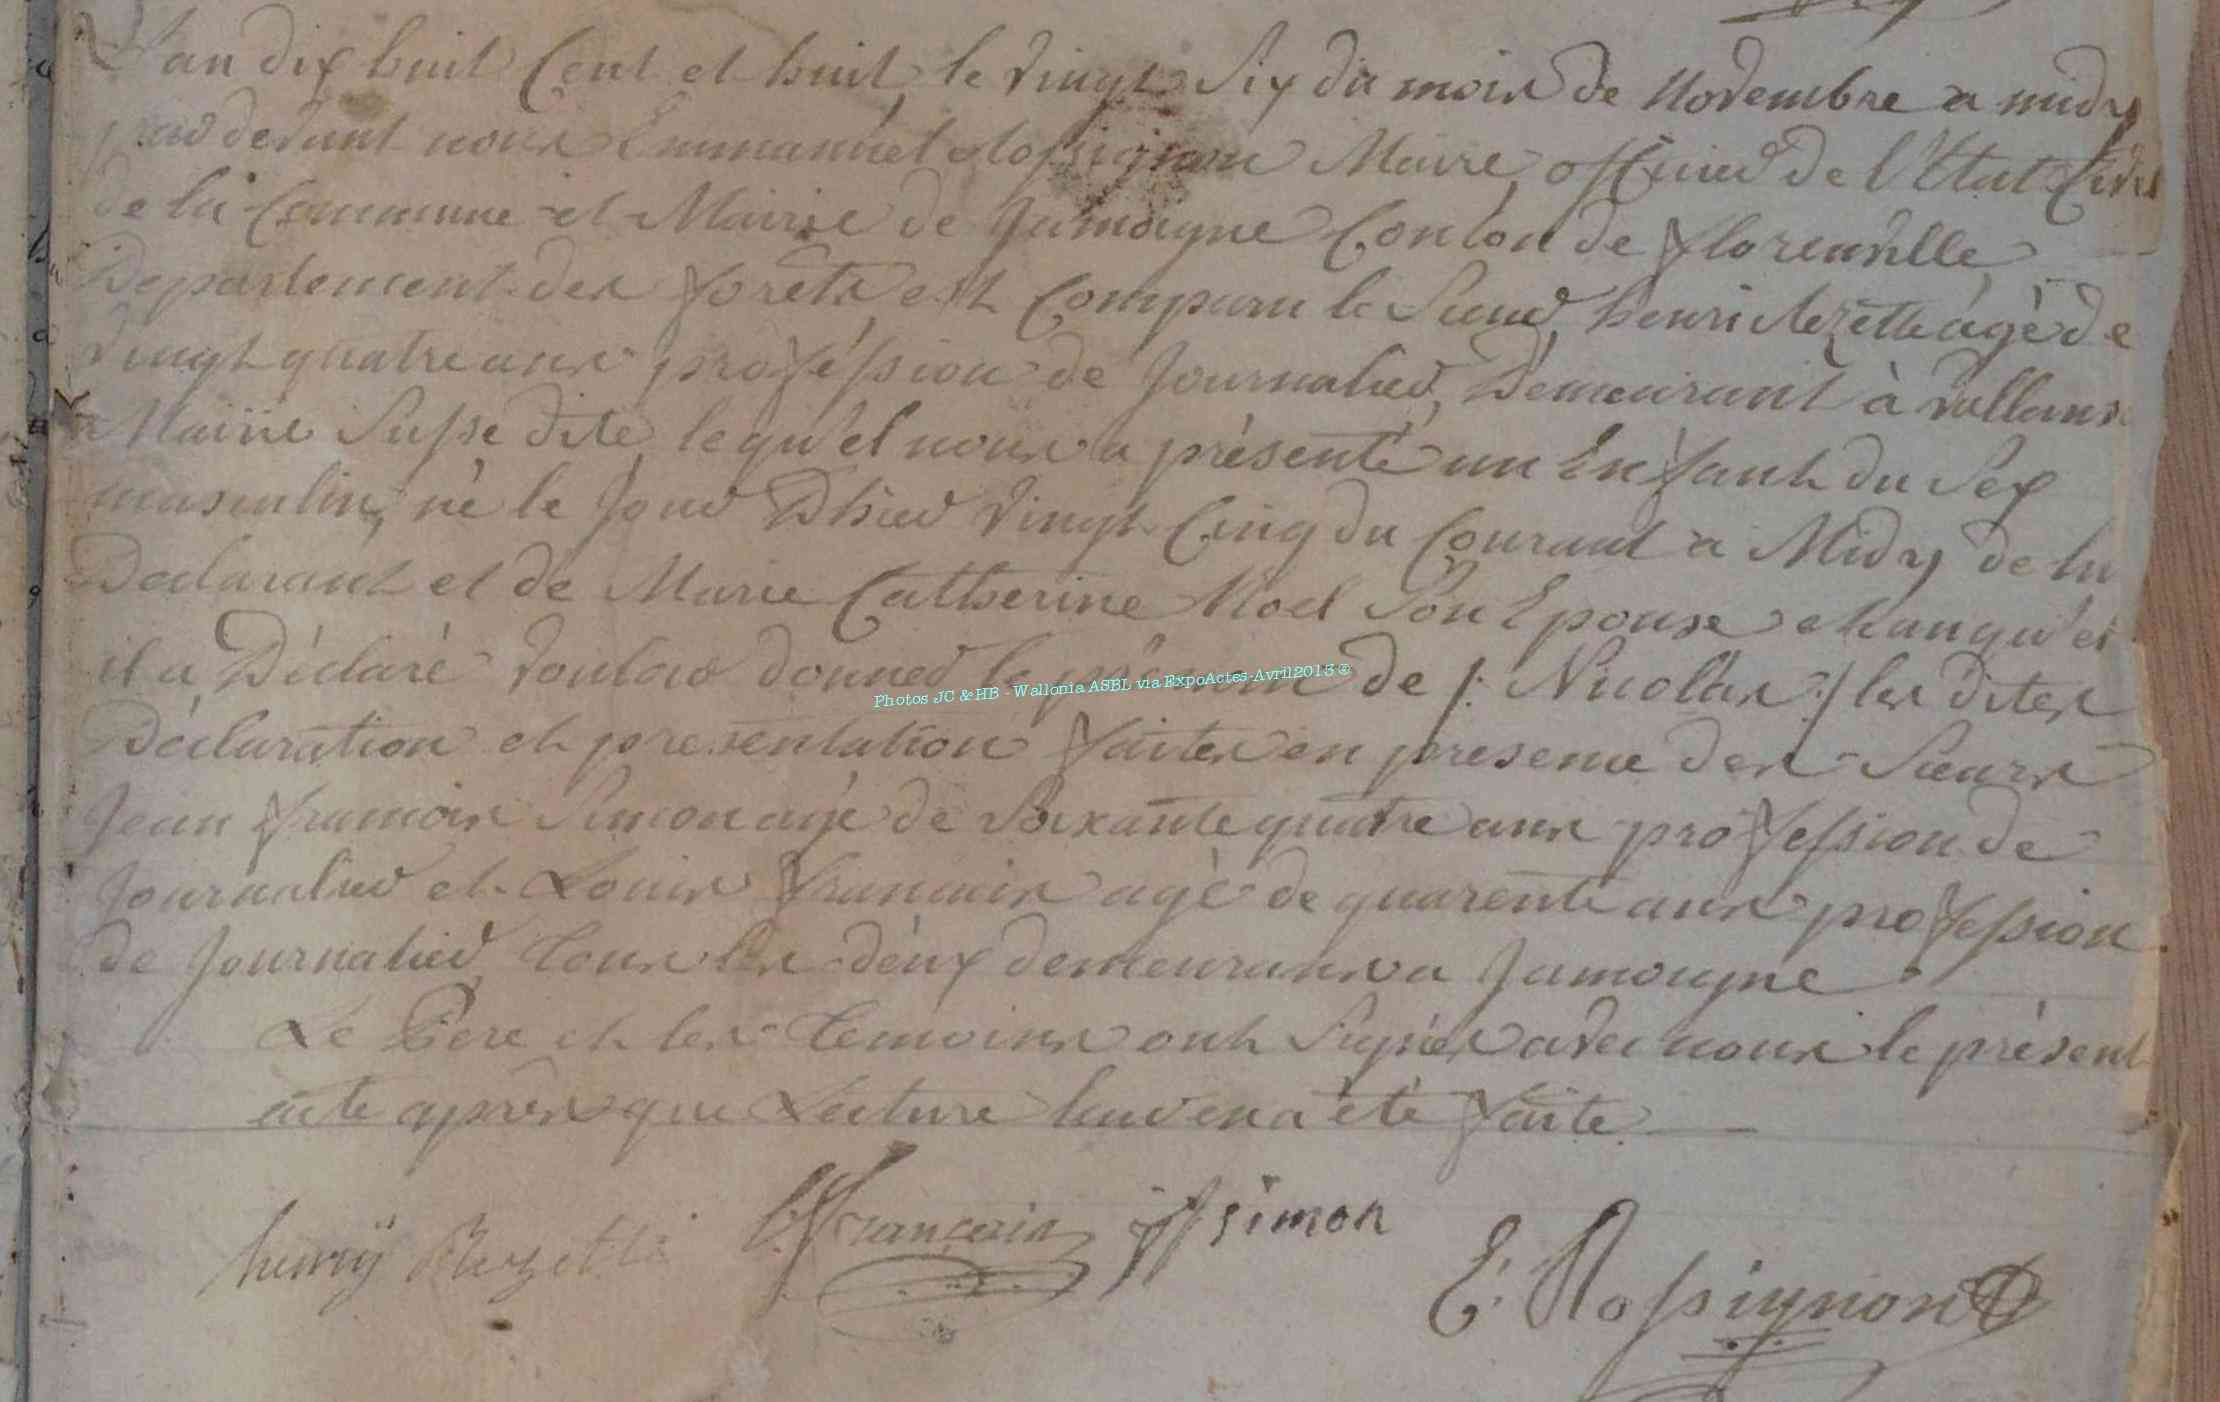 L'an dix huit Cent et huit, le vingt Six du mois de Novembre a midy
par devant nous Emmanuel Rossignon Maire, officier de l'Etat Civil
de la Commune et Mairie de Jamoigne Conton de florenville,
Departement des forêts, est Comparu le Sieur, henri Rezette agé de
vingt quatre ans profession de Journalier, Demeurant à vallans
Mairie Susse dite, lequ'el nous a présenté un Enfant du Sex
masculin, né le Jour D'hier vingt Cinq du Courant a Midy de lui
Declarant et de Marie Catherine Noel Son Epouse et auqu'el
il a Déclaré vouloir donner le prénom de /: Nicolas :/ les dites
Déclaration et presentation faites en presence des Sieurs
Jean francois Simon agé de Soixante quatre ans profession de
Journalier et Louis francois agé de quarente ans profession
de Journalier, tous les deux demeurans a Jamoigne
Le Pere et les temoins ont Signés avec nous le présent
acte apres que Lecture leur en a été faite.
henrÿ Rezette L francois jf simon
E. Rossignon
Photos JC & HB - Wallonia ASBL via ExpoActes-Avril2013 ©